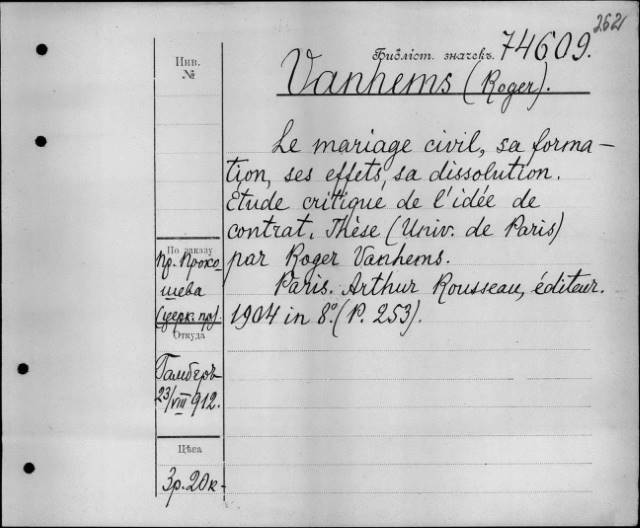 2621
Инв.
№
Библіот. значекъ. 74609.
Vanhems (Roger).
Le mariage civil, sa forma-
tion, ses effets, sa dissolution.
Etude critique de l'idée de
contrat. Thèse (Univ. de Paris)
par Roger Vanhems.
Paris. Arthur Rousseau, éditeur.
1904 in 8º. (P. 253).
По заказу
Пр. Проко-
шева
(церк. пр.)
Откуда
Гамберъ
23/VIII 912.
Цѣна
3р. 20к-